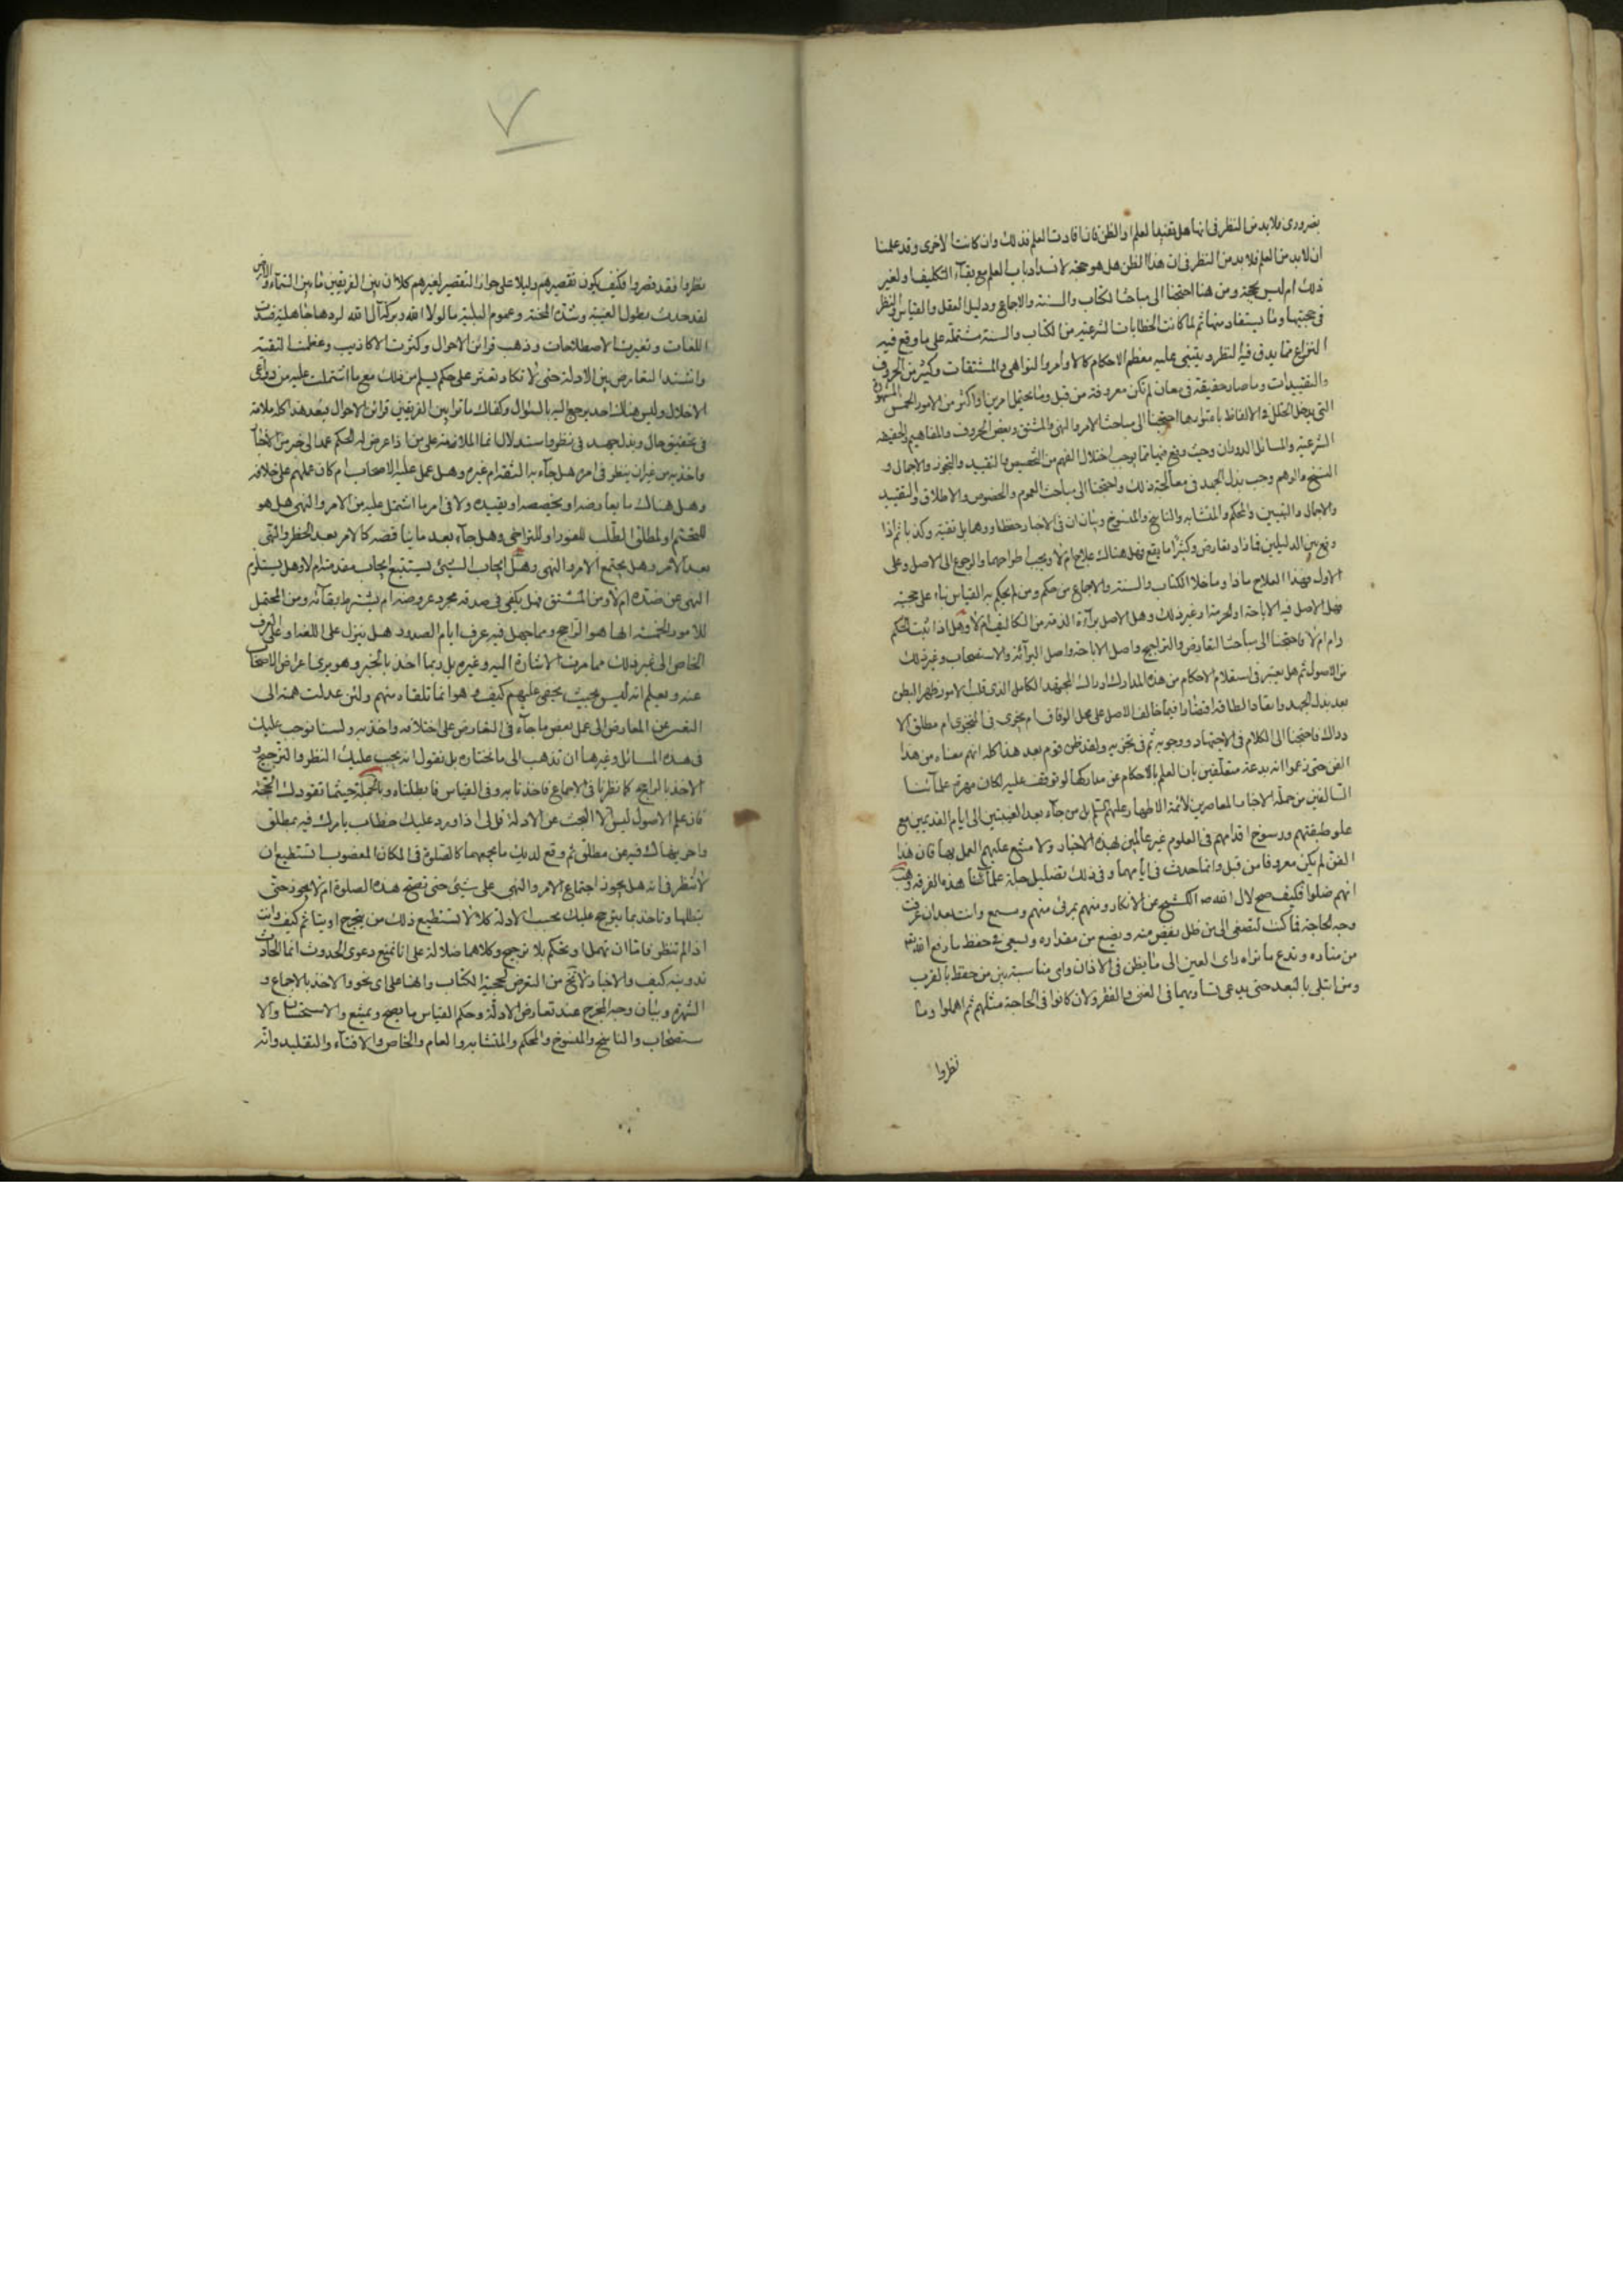 بضروری فلا بد من النظر فی انها هل تفید العلم او الظن فان افادت العلم فذلك وان كانت الاخری وقد علمنا
ان لا بد من العلم فلا بد من النظر فی ان هذا الظن هل هو حجة لانسداد باب العلم مع بقآء التكلیف او لغیر
ذلك ام لیس بحجة ومن هنا احتجنا الی مباحث الكتاب والسنة والاجماع ودلیل العقل والقیاس والنظر
فی حجیتها وما یستفاد منها ثم لما كانت الخطابات الشرعیة من الكتاب والسنة مشتملة علی ما وقع فیه
النزاع مما یدق فیه النظر ویبتنی علیه معظم الاحكام كالاوامر والنواهی والمشتقات وكثیر من الحروف
والتقییدات وما صار حقیقة فی معان لم تكن معروفة من قبل وما یحتمل امرین او اكثر من الامور الخمس المشهورة
التی یدخل الخلل فی الالفاظ باعتوارها احتجنا الی مباحث الامر والنهی والمشتق وبعض الحروف والمفاهیم والحقیقة
الشرعیة والمسائل الدوران وحیث وقع فیها ما یوجب اختلال الفهم من التخصیص والتقیید والتجوز والاجمال و
النسخ والوهم وجب بذل الجهد فی معالجة ذلك واحتجنا الی مباحث العموم والخصوص والاطلاق والتقیید
والاجمال والتبیین والمحكم والمتشابه والناسخ والمنسوخ وبیان ان فی الاخبار حفظا ووهما بل تقیة وكذبا ثم اذا
وقع بین الدلیلین تعارض وكثیرا ما یقع فهل هناك علاج ام لا ویجب اطراحهما والرجوع الی الاصل وعلی
الاول فهذا العلاج ماذا وما خلا الكتاب والسنة والاجماع من حكم ومن لم یحكم به القیاس بناء علی حجیته
فهل الاصل فیه الاباحة او الحرمة او غیر ذلك وهل الاصل برآءة الذمة من التكالیف ام لا وهل اذا ثبت الحكم
دام ام لا فاحتجنا الی مباحث التعارض والتراجیح واصل الاباحة واصل البرآئة والاستصحاب وغیر ذلك
من الاصول ثم هل یعتبر فی استعلام الاحكام من هذه المدارك ادراك المجتهد الكامل الذی قلب الامور ظهرا لبطن
بعد بذل الجهد
دراك فاحتجنا الی الكلام فی الاجتهاد ووجوبه ثم فی تجزیه ولقد ظن قوم بعد هذا كله انهم بمعناء من هذا
الفن حتی زعموا انه بدعة متعلقین بان العلم بالاحكام عن مداركها لو توقف علیه لكان مهرة علمآئنا
السالفین من حملة الاخبار المعاصرین لائمة الاطهار علیهم السلم بل من جآء بعد الغیبتین الی ایام القدیمین مع
علو طبقتهم ورسوخ اقدامهم فی العلوم غیر عالمین بهذه الاخبار ولا متسع علیهم العمل بها فان هذا
الفن لم یكن معروفا من قبل وانما حدث فی ایامهما وفی ذلك تضلیل جلة علمائنا هذه الفرقة وهب
انهم ضلوا فكیف صح لال الله صد الكشح عن الانكار ومنهم بمرئی منهم ومسمع وانت بعد ان عرفت
وجه الحاجة فما كنت لتصغی الی من ظل یغض منه ویضع من مقداره ویسعی فی حفظ ما رفع الله تع
من مناره وتدع ما تراه رای العین الی ما یظن فی الاذان وای مناسبة بین من حفظ بالقرب
ومن ابتلی بالبعد حتی یدعی تساویهما فی الغنی والفقر ولان كانوا فی الحاجة مثلهم ثم اهملوا وما
نظروا
نظروا فقد قصروا فكیف یكون تقصیرهم دلیلا علی جواز التقصیر لغیرهم كلا ان بین الفریقین ما بین السمآء والارض
لقد حدث بطول الغیبة وشدة المحنة وعموم البلیة ما لولا الله وبركة آل الله لردها جاهلیة فسدت
اللغات وتغیرت الاصطلاحات وذهبت قرائن الاحوال وكثرت الاكاذیب وعظمت التقیة
واشتد التعارض بین الادلة حتی لا تكاد تعثر علی حكم یسلم من ذلك مع ما اشتملت علیه من دواعی
الاختلال ولیس هناك احد یرجع الیه بالسئوال وكفاك ما نرا بین الفریقین قرائن الاحوال فبعد هذا كله ملامة
فی تحقیق حال وبذل جهد فی نظر واستدلال انما الملامة علی من اذا عرض له الحكم عمد الی خبر من الاخبار
واخذ به من غیر ان ینظر فی امره هل جآء به الثقة ام غیره وهل عمل علیه الاصحاب ام كان عملهم علی خلافه
وهل هناك ما یعارضه او یخصصه او یقیده ولا فی امر ما اشتمل علیه من الامر والنهی هل هو
للتحتم او لمطلق الطلب للفور او للتراخی وهل جآء بعد ما ینا قضه كالامر بعد الحظر والنهی
بعد الامر وهل یجتمع الامر والنهی وهل ایجاب الشیئ یستتبع ایجاب مقدمته ام لا وهل یستلزم
النهی عن ضده ام لا ومن المشتق فهل یكفی فی صدقه مجرد عروضه ام یشترط بقآئه ومن المحتمل
للامور الخمسة ایها هو الراجح ومما جهل فیه عرف ایام الصدور هل ینزل علی اللغة او علی العرف
الخاص الی غیر ذلك مما مرت الاشارة الیه وغیره بل ربما اخذ بالخبر وهو یری اعراض الاصحاب
عنه ویعلم انه لیس بحیث یخفی علیهم كیف وهو انما تلقاه منهم ولئن عدلت همته الی
التفسر عن المعارض الی عمل بعض ما جآء فی التعارض علی اختلافه واخذ به ولسنا نوجب علیك
فی هذه المسائل وغیرها ان تذهب الی ما نختاره بل نقول انه یجب علیك النظر والترجیح و
الاخذ بالراجح كما نظرنا فی الاجماع فاخذنا به وفی القیاس فابطلناه وبالجملة حیثما تقودك الحجة
فان علم الاصول لیس الا البحث عن الادلة قل لی اذا ورد علیك خطاب یامرك فیه بمطلق
واخر ینهاك فیه عن مطلق ثم وقع لدیك ما یجمعهما كالصلوة فی المكان المغصوب اتستطیع ان
لا تنظر فی انه هل یجوز اجتماع الامر والنهی علی شیئی حتی تصح هذه الصلوة ام لا یجوز حتی
تبطلها وتاخذ بما یترجح علیك بحسب الادلة كلا لا تستطیع ذلك
اذا لم تنظر فاما ان تهمل او تحكم بلا ترجیح وكلاهما ضلالة علی انا نمنع دعوی الحدوث انما الحادث
تدوینه كیف والاخبار لا تخ من التعرض لحجیة الكتاب وانها علی ای نحو والاخذ بالاجماع و
الشهرة وبیان وجه المخرج عند تعارض الادلة وحكم القیاس ما یصح ویمتنع والاستحسان والا
ستصحاب والناسخ والمنسوخ والمحكم والمتشابه والعام والخاص والافتآء والتقلید وانه